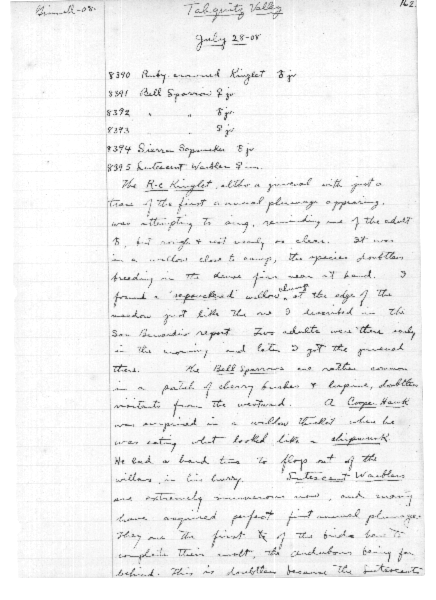 Grinnell-08. Tahquitz Valley 162
July 28-08
8390 Ruby-crowned Kinglet ♂ jv
8391 Bell Sparrow ♀ jv
8392 " " ♂ jv
8393 " " ♂ jv
8394 Sierra Sapsucker ♂ jv
8395 Lutescent Warbler ♂ im.
The R-c Kinglet, altho a juvenal with just a
trace of the first annual plumage appearing,
was attempting to sing, reminding me of the adult
♂, but rough & not nearly as clear. It was
in a willow close to camp, the species doubtless
breeding in the dense pines near at hand. I
found a "sapsuckered" willow clump at the edge of the
meadow just like the one I described in the
San Bernardino report. Two adults were there early
in the morning and later I got the juvenal
there. The Bell Sparrows are rather common
in a patch of cherry bushes & lupine, doubtless
visitants from the westward. A Cooper Hawk
was surprised in a willow thicket where he
was eating what looked like a chipmunk.
He had a hard time to flop out of the
willows, in his hurry. Lutescent Warblers
are extremely numerous now, and many
have acquired perfect first annual plumage.
They are the first of the birds here to
complete their moult, the audubons being far
behind. This is doubtless because the lutescents